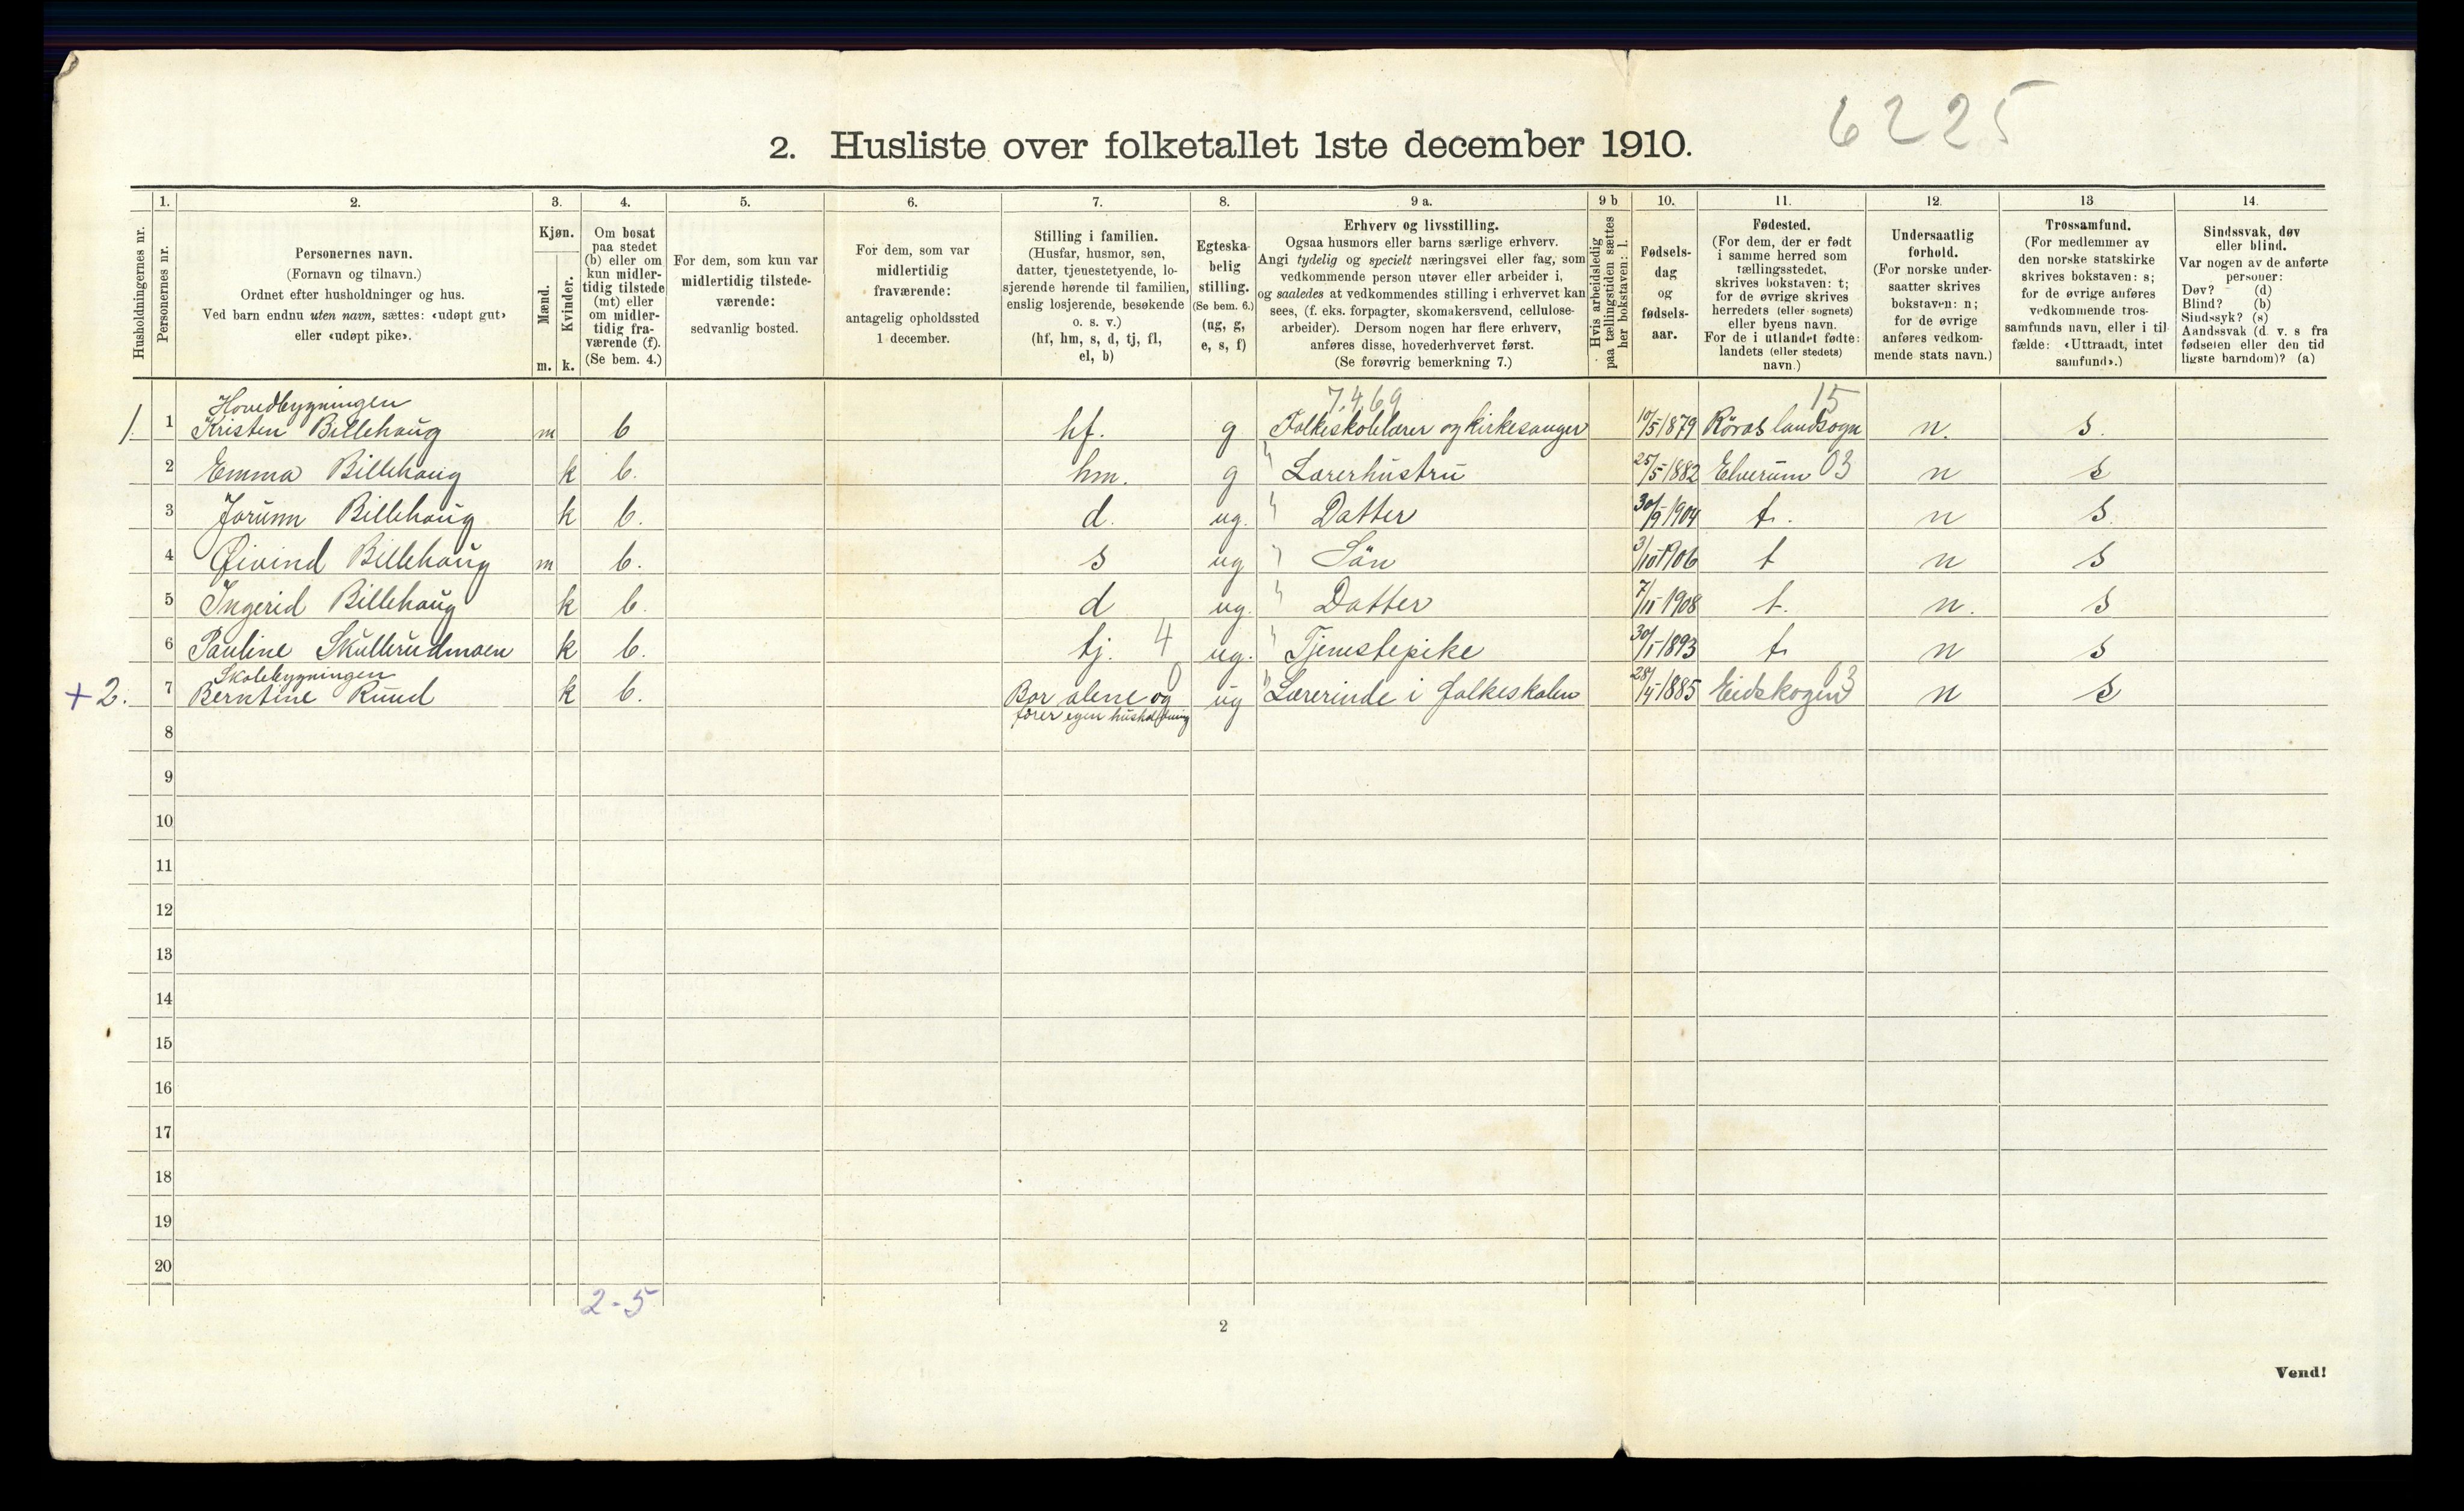 6225
2. Husliste over folketallet 1ste december 1910.
Husholdningernes nr.
1.
Personernes nr.
2.
Personernes navn.
(Fornavn og tilnavn.)
Ordnet efter husholdninger og hus.
Ved barn endnu uten navn, sættes: «udøpt gut»
eller «udøpt pike».
3.
Kjøn.
Mænd.
Kvinder.
m. k.
4.
Om bosat
paa stedet
(b) eller om
kun midler-
tidig tilstede
(mt) eller
om midler-
tidig fra-
værende (f).
(Se bem. 4.)
5.
For dem, som kun var
midlertidig tilstede-
værende:
sedvanlig bosted.
6.
For dem, som var
midlertidig
fraværende:
antagelig opholdssted
1 december.
7.
Stilling i familien.
(Husfar, husmor, søn,
datter, tjenestetyende, lo-
sjerende hørende til familien,
enslig losjerende, besøkende
o. s. v.)
(hf, hm, s, d, tj, fl,
el, b)
8.
Egteska-
belig
stilling.
(Se bem. 6.)
(ug, g,
e, s, f)
9 a.
Erhverv og livsstilling.
Ogsaa husmors eller barns særlige erhverv.
Angi tydelig og specielt næringsvei eller fag, som
vedkommende person utøver eller arbeider i,
og saaledes at vedkommendes stilling i erhvervet kan
sees, (f. eks. forpagter, skomakersvend, cellulose-
arbeider). Dersom nogen har flere erhverv,
anføres disse, hovederhvervet først.
(Se forøvrig bemerkning 7.)
9 b
Hvis arbeidsledig
paa tællingstiden sættes
her bokstaven: l.
10.
Fødsels-
dag
og
fødsels-
aar.
11.
Fødested.
(For dem, der er født
i samme herred som
tællingsstedet,
skrives bokstaven: t;
for de øvrige skrives
herredets (eller sognets)
eller byens navn.
For de i utlandet fødte:
landets (eller stedets)
navn.)
12.
Undersaatlig
forhold.
(For norske under-
saatter skrives
bokstaven: n;
for de øvrige
anføres vedkom-
mende stats navn.)
13
Trossamfund.
(For medlemmer av
den norske statskirke
skrives bokstaven: s;
for de øvrige anføres
vedkommende tros-
samfunds navn, eller i til-
fælde: «Uttraadt, intet
samfund».)
14.
Sindssvak, døv
eller blind.
Var nogen av de anførte
personer:
Døv? (d)
Blind? (b)
Sindssyk? (s)
Aandssvak (d. v. s. fra
fødselen eller den tid
ligste barndom)? (a)
Hovedbygningen 7.4.69 15
1. 1 Kristen Billehaug m b hf. g Folkeskolelærer og kirkesanger 10/5 1879 Röros landsogn n. s.
2 Emma Billehaug k b. hm. g " Lærerhustru 25/5 1882 Elverum 03 n s
3 Jorunn Billehaug k b. d. ug. " Datter 30/9 1904 t. n s.
4 Øivind Billehaug m b. s ug " Sön 3/10 1906 t n s
5 Ingerid Billehaug k b. d ug. " Datter 7/11 1908 t. n. s
6 Pauline Skullerudmoen k b. tj. 4 ug. " Tjenestepike 30/1 1893 t n s
Skolebygningen 0 03
+ 2. 7 Berntine Ruud k b. Bor alene og ug " Lærerinde i folkeskolen 28/4 1885 Eidskogen n s
fører egen husholdning
8
9
10
11
12
13
14
15
16
17
18
19
20
2-5
2
Vend!